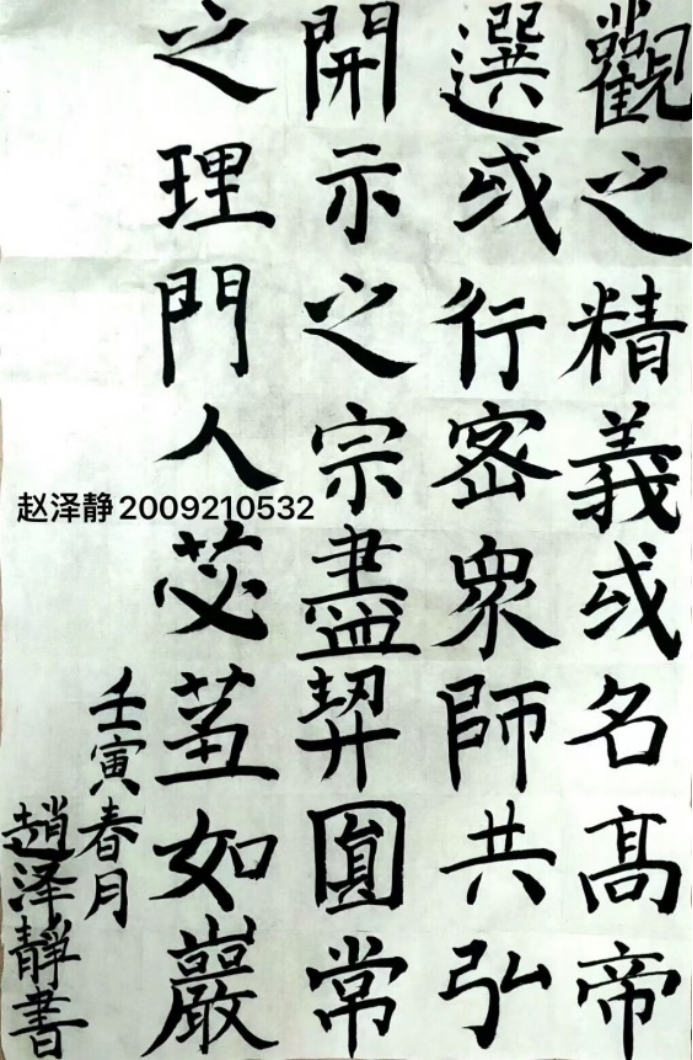 觀之精義或名高帝
選或行密眾師共弘
開示之宗盡契圓常
之理門人苾蒭如巖
壬寅春月
趙泽靜書
赵泽静2009210532